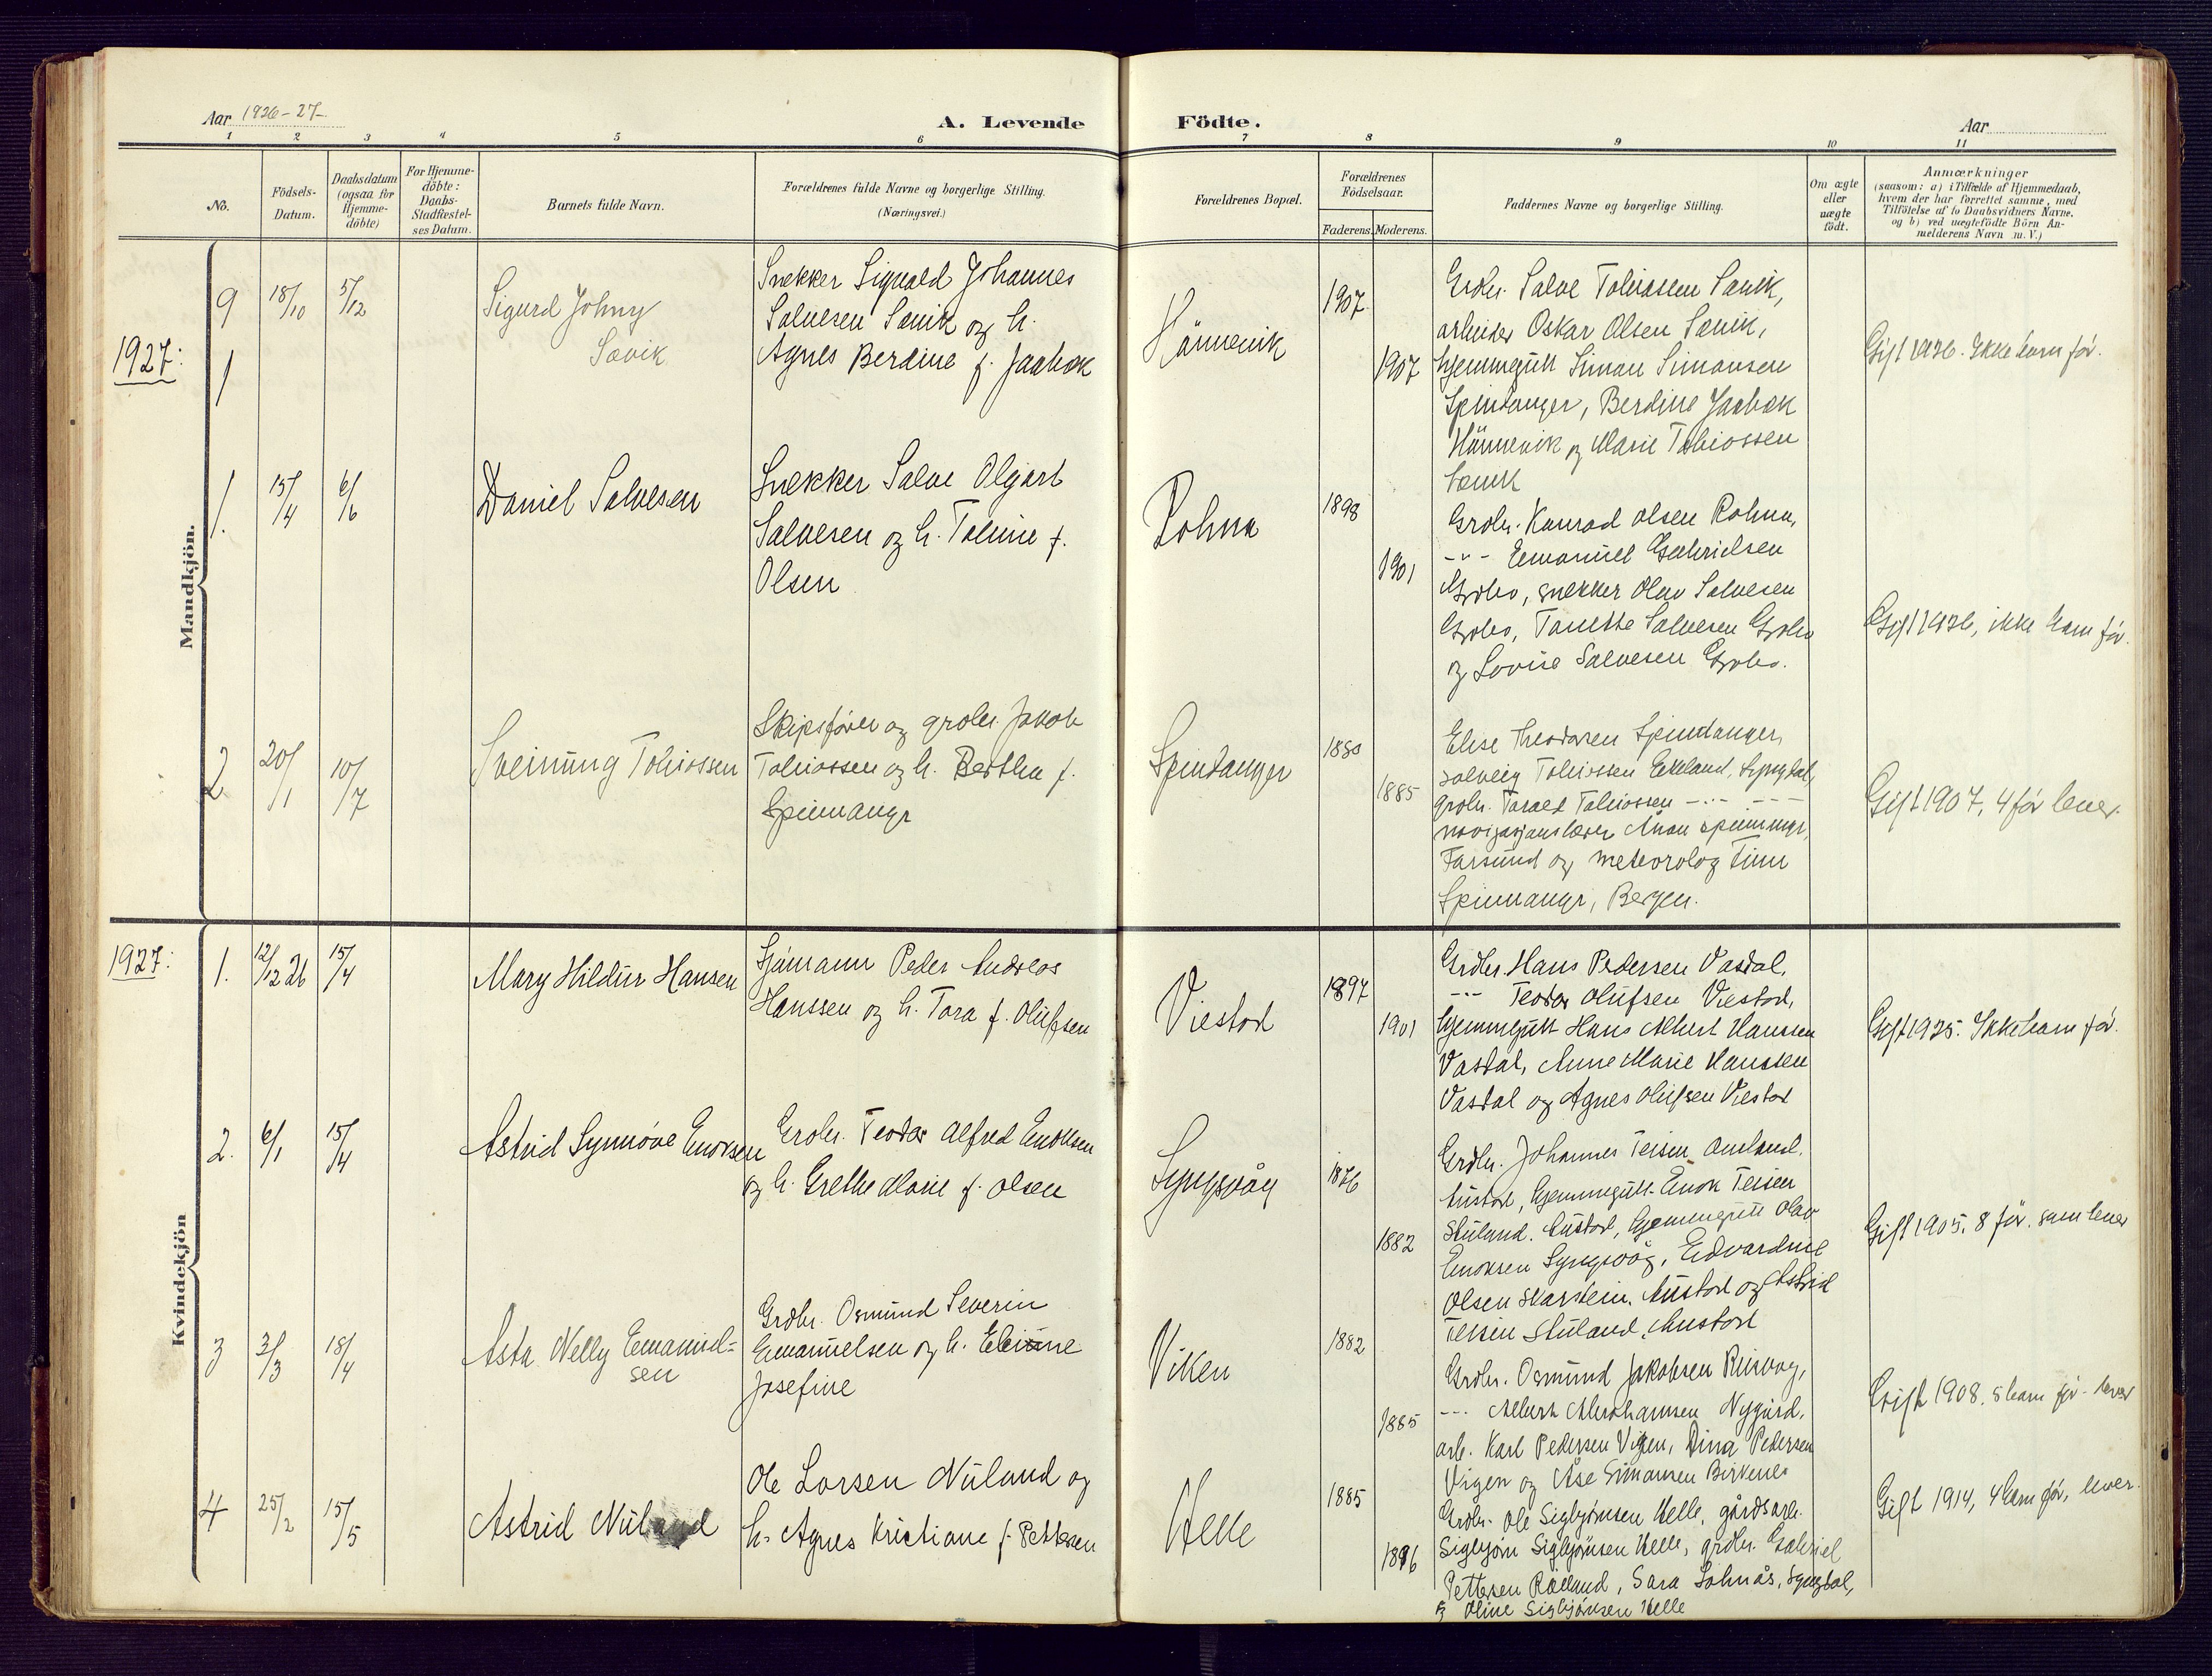 Aar 1926-27-
A. Levende Födte.
Aar
1 2 3 4 5 6 7 8 9 10 11
No.
Födsels-Datum.
Daabsdatum (ogsaa for Hjemme-döbte)
For Hjemme-döbte: Daabs-Stadfæstel-ses Datum.
Barnets fulde Navn.
Forældrenes fulde Navne og borgerlige Stilling.
(Næringsvei.)
Forældrenes Bopæl.
Forældrenes Födselsaar.
Faderens. Moderens.
Faddernes Navne og borgerlige Stilling.
Om ægte eller uægte födt.
Anmærkninger
(saasom: a) i Tilfælde af Hjemmedaab,
hvem der har forrettet samme, med
Tilföielse af to Daabsvidners Navne.
og b) ved uægtefödte Börn An-
melderens Navn m. V.)
Mandkjön.
1927:
9 18/10 5/12
1
Sigurd Johny
Sævik
Snekker Sigvald Johannes
Salvesen Sævik og h.
Agnes Berdine f. Jaabæk
Hännevik
1907
1907
Grdbr. Salve Tobiassen Sævik,
arbeider Oskar Olsen Sævik,
hjemmegutt Simon Simonsen
Spindanger, Berdine Jaabæk
Hännevik og Marie Tobiassen
Sævik
Gift 1926. Ikke barn før.
1. 15/4 6/6
Daniel Salvesen
Snekker Salve Olgart
Salvesen og h. Tomine f.
Olsen
Rohna
1898
1901
Grdbr. Konrad Olsen Rohna,
-"- Emanuel Gabrielsen
Grobo, snekker Olav Salvesen
Grobo, Tanette Salvesen Grobo
og Lovise Salvesen Grobo.
Gift 1926, ikke barn før.
2 20/1 10/7
Sveinung Tobiassen
Skipsfører og grdbr. Jakob
Tobiassen og h. Bertha f.
Spinnangr
Spindanger
1880
1885
Elise Theodorsen Spindanger,
Solveig Tobiassen Ekeland, Lyngdal,
grdbr. Torald Tobiassen -"- ---
navigasjonslærer Anon Spinnangr,
Farsund og meteorolog Finn
Spinnangr, Bergen.
Gift 1907, 4 før lever.
Kvindekjön
1927:
1. 12/12 26 15/4
Mary Hildur Hansen
Sjømann Peder Andreas
Hanssen og h. Tora f. Olufsen
Viestad
1897
1901
Grdbr. Hans Pedersen Vasdal,
-"- Teodor Olufsen Viestad,
hjemmegutt Hans Albert Hanssen
Vasdal, Anne Marie Hanssen
Vasdal og Agnes Olufsen Viestad
Gift 1925. Ikke barn før.
2. 6/1 15/4
Astrid Synnøve Enoksen
Grdbr. Teodor Alfred Enoksen
og h. Grethe Marie f. Olsen
Lyngsvåg
1876
1882
Grdbr. Johannes Teisen Omland,
Austad, hjemmegutt Enok Teisen
Stuland. Austad, hjemmegutt Olav
Enoksen Lyngsvåg, Edvardine
Olsen Skarstein, Austad og Astrid
Teisen Stuland, Austad
Gift 1905. 8 før. som lever
3 3/3 18/4
Asta Nelly Emanuel=
sen
Grdbr. Osmund Severin
Emanuelsen og h.
Josefine
Viken
1882
1885
Grdbr. Osmund Jakobsen Risvåg,
-"- Albert Abrahamsen Nygård,
arb. Karl Pedersen Vigen, Dina Pedersen
Vigen og Åse Simonsen Birkenes
Gift 1908. 5 barn før - lever
4 25/2 15/5
Astrid Nuland
Ole Larsen Nuland og
h. Agnes Kristiane f. Pettersen
Helle
1885
1896
Grdbr. Ole Sigbjørnsen Helle, gårdsarb.
Sigbjørn Sigbjørnsen Helle, grdbr. Gabriel
Pettersen Rålland, Sara Solnås, Lyngdal,
og Oline Sigbjørnsen Helle
Gift 1914, 4 barn før, lever.